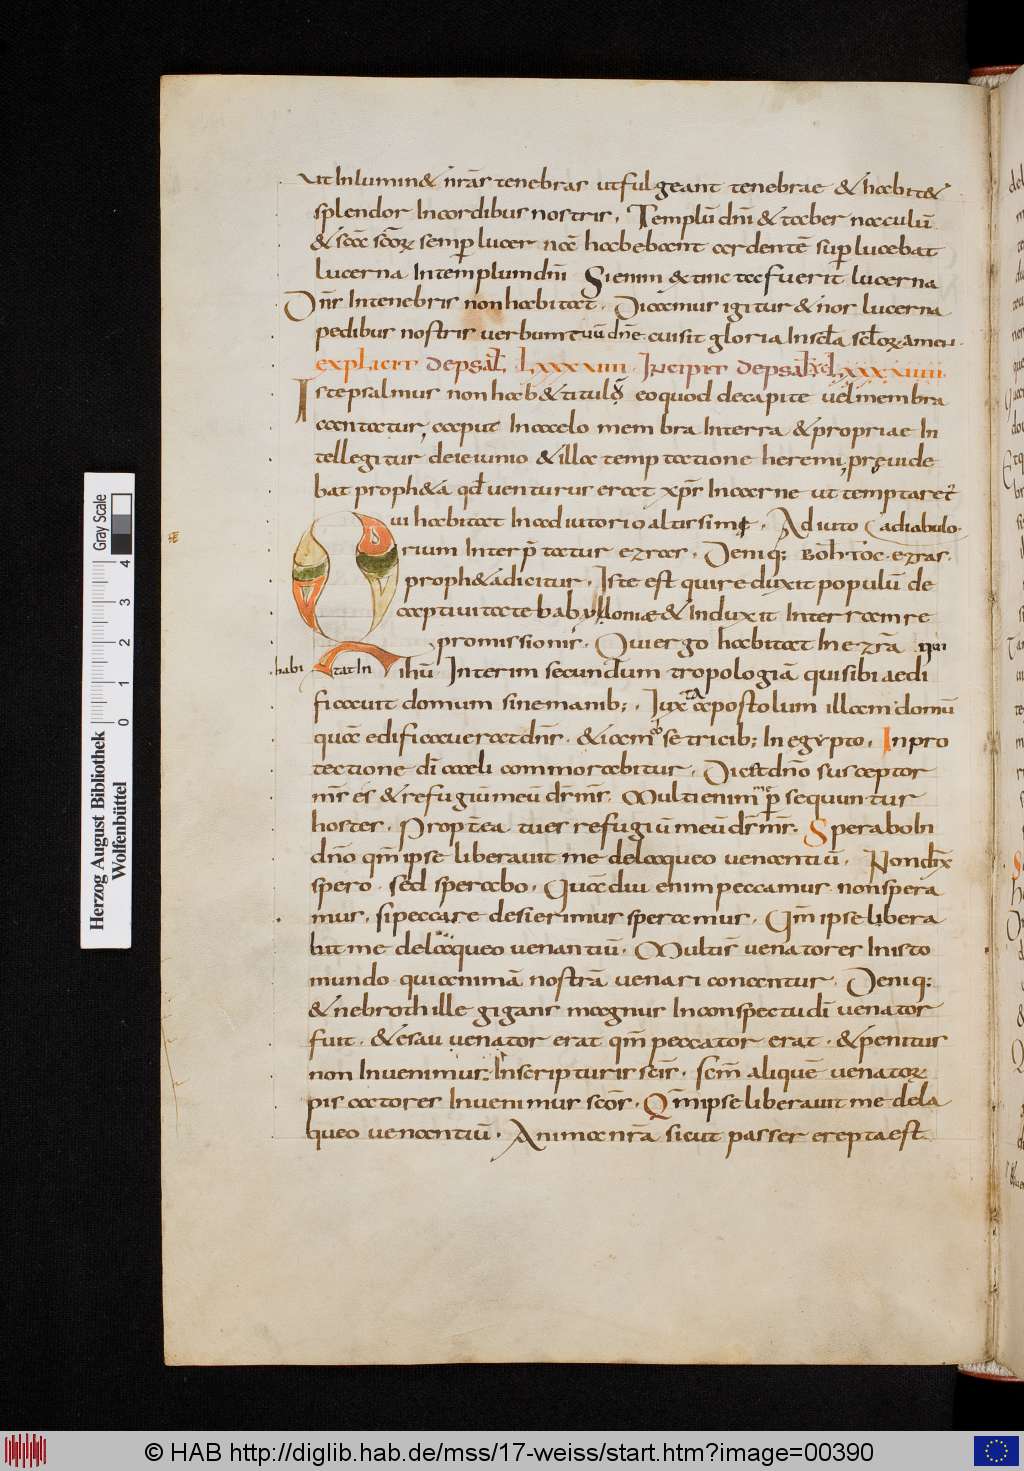 ut Inlumin& nr̄as tenebras ut fulgeant tenebrae & habit&
splendor Incordibus nostris. Templū dn̄i & taber naculū
& sc̄a sc̄oꝝ semp̄ lucer nā habebant ardentē sup̄ lucebat
lucerna Intemplum dn̄i Si enim extincta fuerit lucerna
Dn̄s Intenebris non habitat. Dicamus igitur & nos lucerna
pedibus nostris uerbum tuū dn̄e cui sit gloria Insc̄la sc̄loꝝ amen.
explicit de psal LXXXVIIII. Incipit de psal LXXXXIIII.
Iste psalmus non hab& titulū eo quod de capite uel membra
cantatur, caput Incaelo membra Interra & propriae In
tellegitur de ieiunio & illa temptatione heremi, pręuide
bat proph&a qd̄ uenturus erat xp̄s Incarne ut temptare&
Qui habitat Inadiutorio altissimi. Adiuto adiabulo.
rium Interp̄tatur ezras. Deniq; bohtoc. ezras.
proph&a dicitur. Iste est qui reduxit populū de
captiuitate babyloniae & Induxit Interram re
promissionis. Qui ergo habitat In ezrā nqui
habi tat In ihū Interim secundum tropologiā qui sibi aedi
ficauit domum sine manib;. Iuxta apostolum illam domū
quā edificauerat dn̄s. & iam obsetricib; In egypto. In pro
tectione dī caeli commorabitur. Dic& dn̄o susceptor
ms̄ es & refugiū meū ds̄ ms̄. Multi enim me p̄sequuntur
hostes. Propt̄ea tu es refugiū meū ds̄ ms̄. Sperabo In
dn̄o qm̄ ipse liberauit me de laqueo uenantiū. Non dix̄
spero. sed sperabo. Quādiu enim peccamus. non spera
mus. si peccare desierimus speramus. Qm̄ ipse libera
bit me de laqueo uenantiū. Multis uenatores Inisto
mundo. qui animā nostrā uenari conantur. Deniq;
& nebroth ille gigans magnus Inconspectu dī uenator
fuit. & esau uenator erat qm̄ peccator erat. & penitus
non Inuenimus. Inscripturis sc̄is. sc̄m̄ aliquē uenatoꝝ
piscatores Inuenimus sc̄os. Qm̄ ipse liberauit me de la
queo uenantiū. Anima nr̄a sicut passer erepta est
Herzog August Bibliothek
Wolfenbüttel
0 1 2 3 4
Gray Scale
© HAB http://diglib.hab.de/mss/17-weiss/start.htm?image=00390